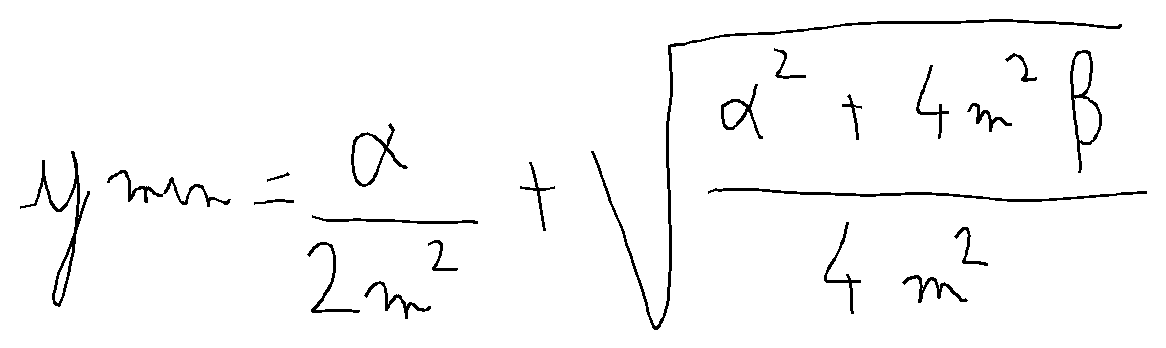 y min = \frac{α}{2m^2} + \sqrt{\frac{α^2 + 4m^2 β}{4m^2}}